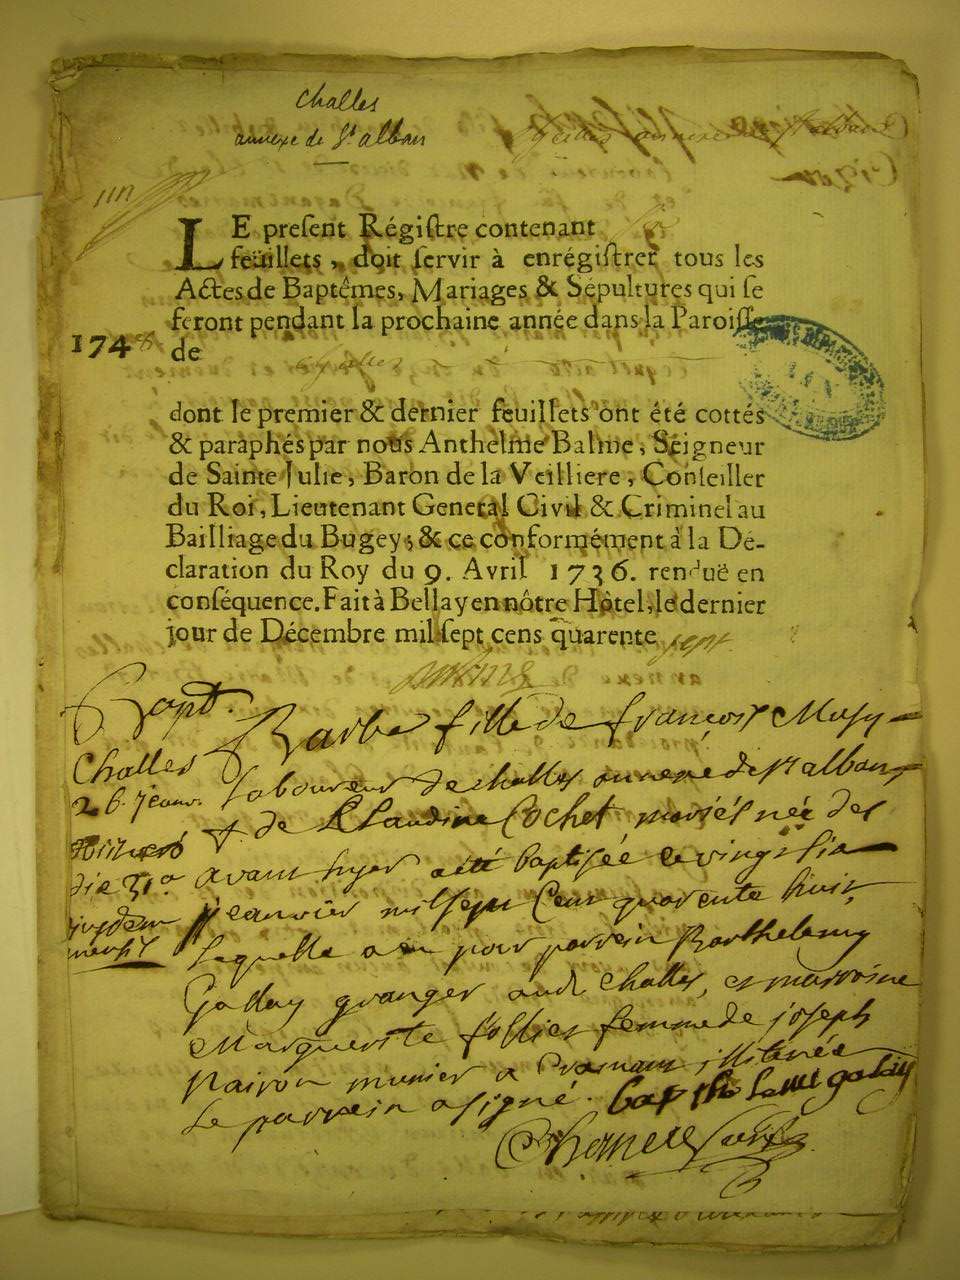 Challes
annexe de St alban
LE present Régistre contenant
feüillets, doit servir à enrégistrer tous les
Actes de Baptêmes, Mariages & Sépultures qui se
feront pendant la prochaine année dans la Paroisse
1748 de Challes
dont le premier & dernier feuillets ont été cottés
& paraphés par nous Anthelme Balme, Seigneur
de Sainte Julie, Baron de la Veilliere, Conseiller
du Roi, Lieutenant General Civil & Criminel au
Bailliage du Bugey; & ce conformément à la De-
claration du Roy du 9. Avril 1736. renduë en
conséquence. Fait à Bellay en nôtre Hôtel, le dernier
jour de Décembre mil sept cens quarente sept.
Bapt.
Challes
26. Jeanv.
die 31a
Barbe fille de françois Musy
laboureur de challes annexe de St alban
& de Claudine Cochet mariés née des
avant hyer a été baptisée ce vingt six
jeanvier mil sept Cent quarente huit,
laquelle a eu pour parrein Barthelemy
Gallay granger audt challes, et marraine
Marguerite follier femme de joseph
munier a illiterée
le parrein a signé.